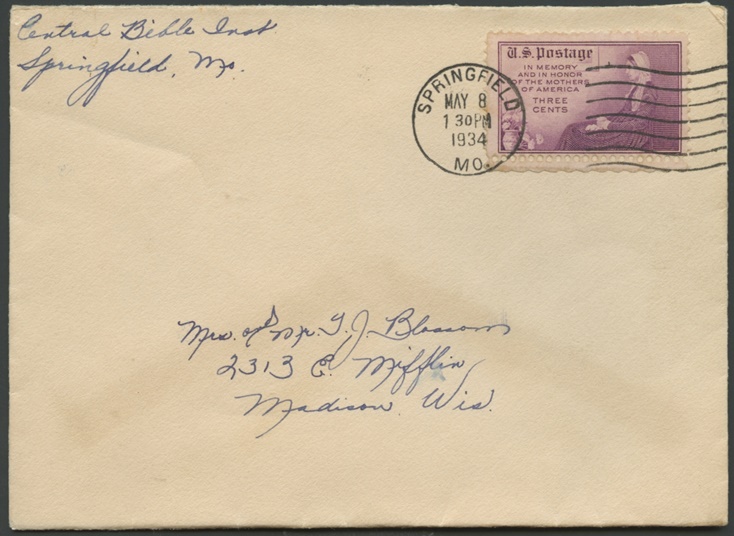 Central Bible Inst
Springfield, Mo.
U.S. Postage
IN MEMORY
AND IN HONOR
OF THE MOTHERS
OF AMERICA
THREE
CENTS
SPRINGFIELD
MAY 8
1 30 PM
1934
MO.
Mrs. & Mr. T. J. Blossom
2313 E. Mifflin
Madison, Wis.